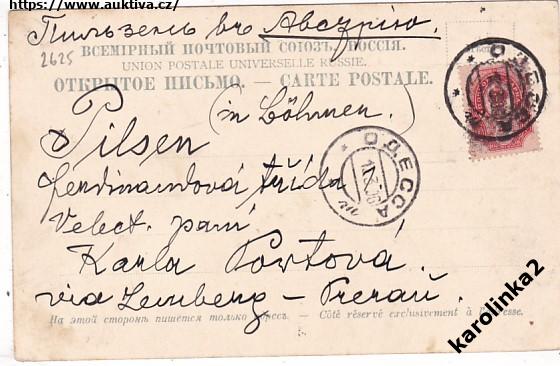 https://www.auktiva.cz/
Пильзень въ Австрію.
2625
ВСЕМІРНЫЙ ПОЧТОВЫЙ СОЮЗЪ. РОССІЯ.
UNION POSTALE UNIVERSELLE RUSSIE.
ОТКРЫТОЕ ПИСЬМО. — CARTE POSTALE.
ОДЕССА
(in Böhmen.)
Pilsen
ОДЕССА
Ferdinandová třída
Velect. paní
Karla Portová.
via Lemberg – Prerau.
На этой сторонѣ пишется только адресъ. — Côté réservé exclusivement à l'adresse.
karolinka2